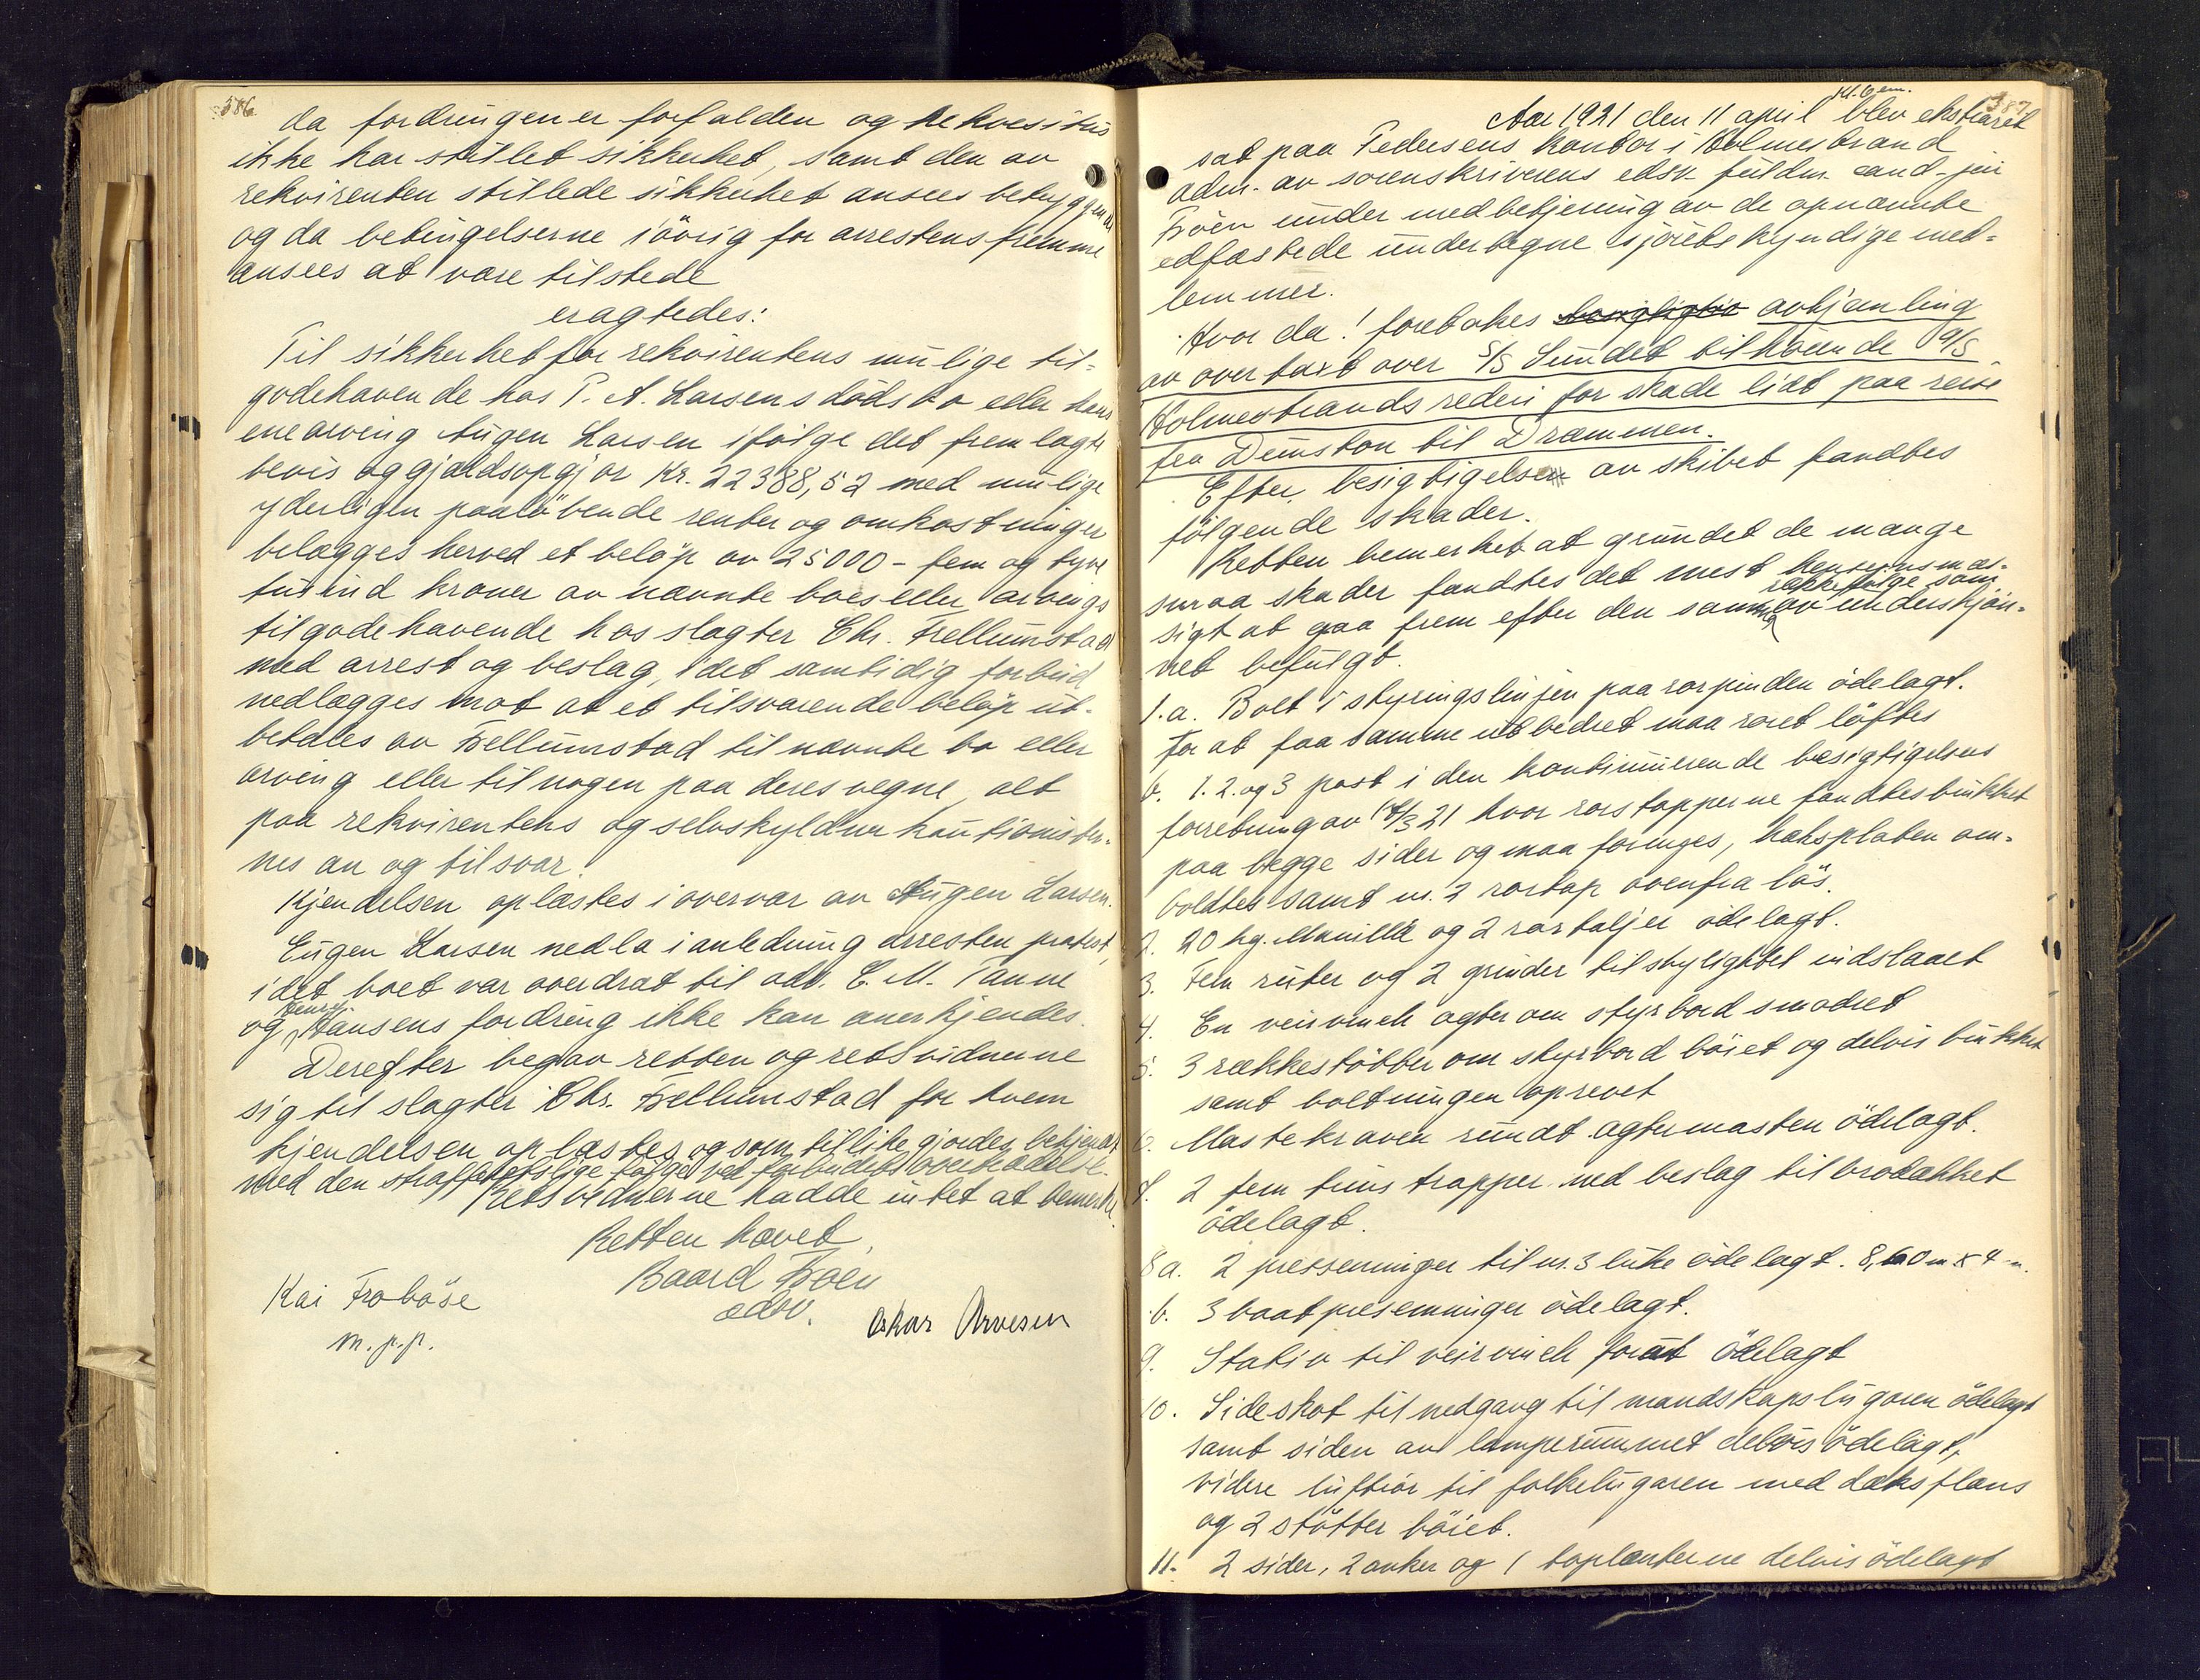 386
da fordringen er forfalden og rekvisitus
ikke har stillet sikkerhet, samt den av
rekvirenten stillede sikkerhet ansees betryggende
og da betingelserne iövrig for arrestens fremme
ansees at være tilstede
eragtedes:
Til sikkerhet for rekvirentens mulige til-
godehavende hos P. A. Larsens dödsbo eller hans
enearving Eugen Larsen ifölge det fremlagte
bevis og gjældsopgjör Kr. 22388,52 med mulige
yderligere paalöbende renter og omkostninger
belægges herved et belöp av 25000 - fem og tyve
tusind kroner av nævnte boes eller arvings
tilgodehavende hos slagter Chr. Frellumstad
med arrest og beslag, idet samtidig forbud
nedlægges mot at et tilsvarende belöp ut-
betales av Frellumstad til nævnte bo eller
arving eller til nogen paa deres vegne, alt
paa rekvirentens og selvskyldner kautionister-
nes an og tilsvar.
Kjendelsen oplæstes i overvær av Eugen Larsen.
Eugen Larsen nedla i anledning arresten protest,
idet boet var overdrat til adv. C. M. Tanne
og Henry Hansens fordring ikke kan anerkjendes.
Derefter begav retten og retsvidnerne
sig til slagter Chr. Frellumstad for hvem
kjendelsen oplæstes og som tillike gjordes bekjendt
med den strafferetslige fölge ved forbudets overtrædelse.
Retsvidnerne hadde intet at bemerke.
Retten hævet.
Baard Böen
edsv.
Kai Froböse
m.p.p.
Oskar Arvesen
387
Aar 1921 den 11 april kl. 6 em. blev ekstraret
sat paa Pedersens kontor i Holmestrand
adm. av sorenskriverens edsv. fuldm. cand. jur.
Böen under medbetjening av de opnævnte
edfæstede undertegne sjöretskyndige med-
lemmer.
Hvor da! foretokes avhjemling
av overtaxt over S/S Sundet tilhörende A/S
Holmestrands rederi for skade lidt paa reise
fra Dunston til Drammen.
Efter besigtigelsen av skibet fandtes
fölgende skader.
Retten bemerket at grundet de mange
smaa skader fandtes det mest hensigtsmæs-
sigt at gaa frem efter den samme rækkefölge som av underskjön-
net befulgt.
1.a. Bolt i styringslinjen paa rorpinden ödelagt.
For at faa samme utbedret maa roret löftes
b. 1. 2. og 3 post i den kontinuerende besigtigelses
forretning av 18/3 21 hvor rorstopperne fandtes brukket
paa begge sider og maa fornyes, hæksplaten om-
boldtes samt nr. 2 rortap ovenfra lös.
2. 20 kg. Manilla og 2 rortaljer ödelagt.
3. Fem ruter og 2 grinder til skylightet indslaaet
4. En veivinch agter om styrbord smadret
5. 3 rækkestötter om styrbord böiet og delvis brukket
samt boltningen oprevet
6. Mastekraven rundt agtermasten ödelagt.
7. 2 fem trins trapper med beslag til brodækket
ödelagt.
8 a. 2 presseninger til nr. 3 luke ödelagt. 8,60 m x 4 m.
b. 3 baatpresenninger ödelagt.
9. Stativ til veivinch forut ödelagt
10. Sideskot til nedgang til mandskapslugaren ödelagt
samt siden av lamperummet delvis ödelagt,
videre luftrör til folkelugaren med dæksflans
og 2 stötter böiet.
11. 2 sider, 2 anker og 1 toplanterne delvis ödelagt